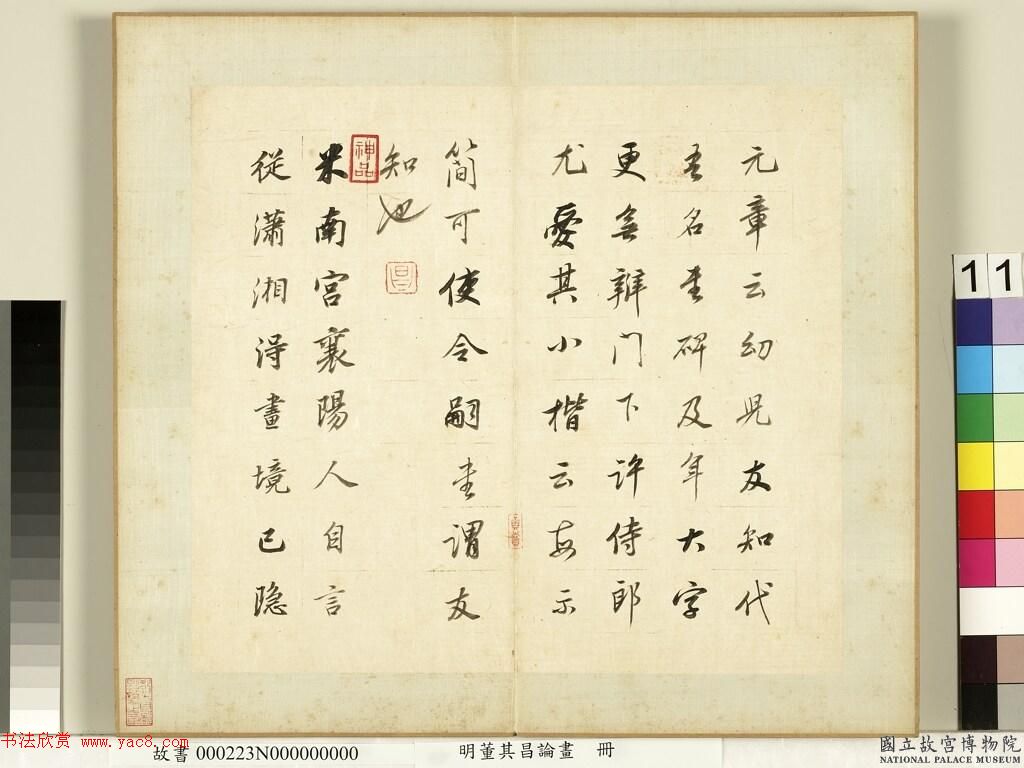 元章云幼児友知代
吾名書碑及年大字
更無辨門下許侍郎
尤愛其小楷云每示
簡可使令嗣書謂友
知也
神品
米南宮襄陽人自言
從瀟湘得畫境已隐
11
书法欣赏 www.yac8.com
故書 000223N000000000
明董其昌論畫 冊
國立故宮博物院
NATIONAL PALACE MUSEUM